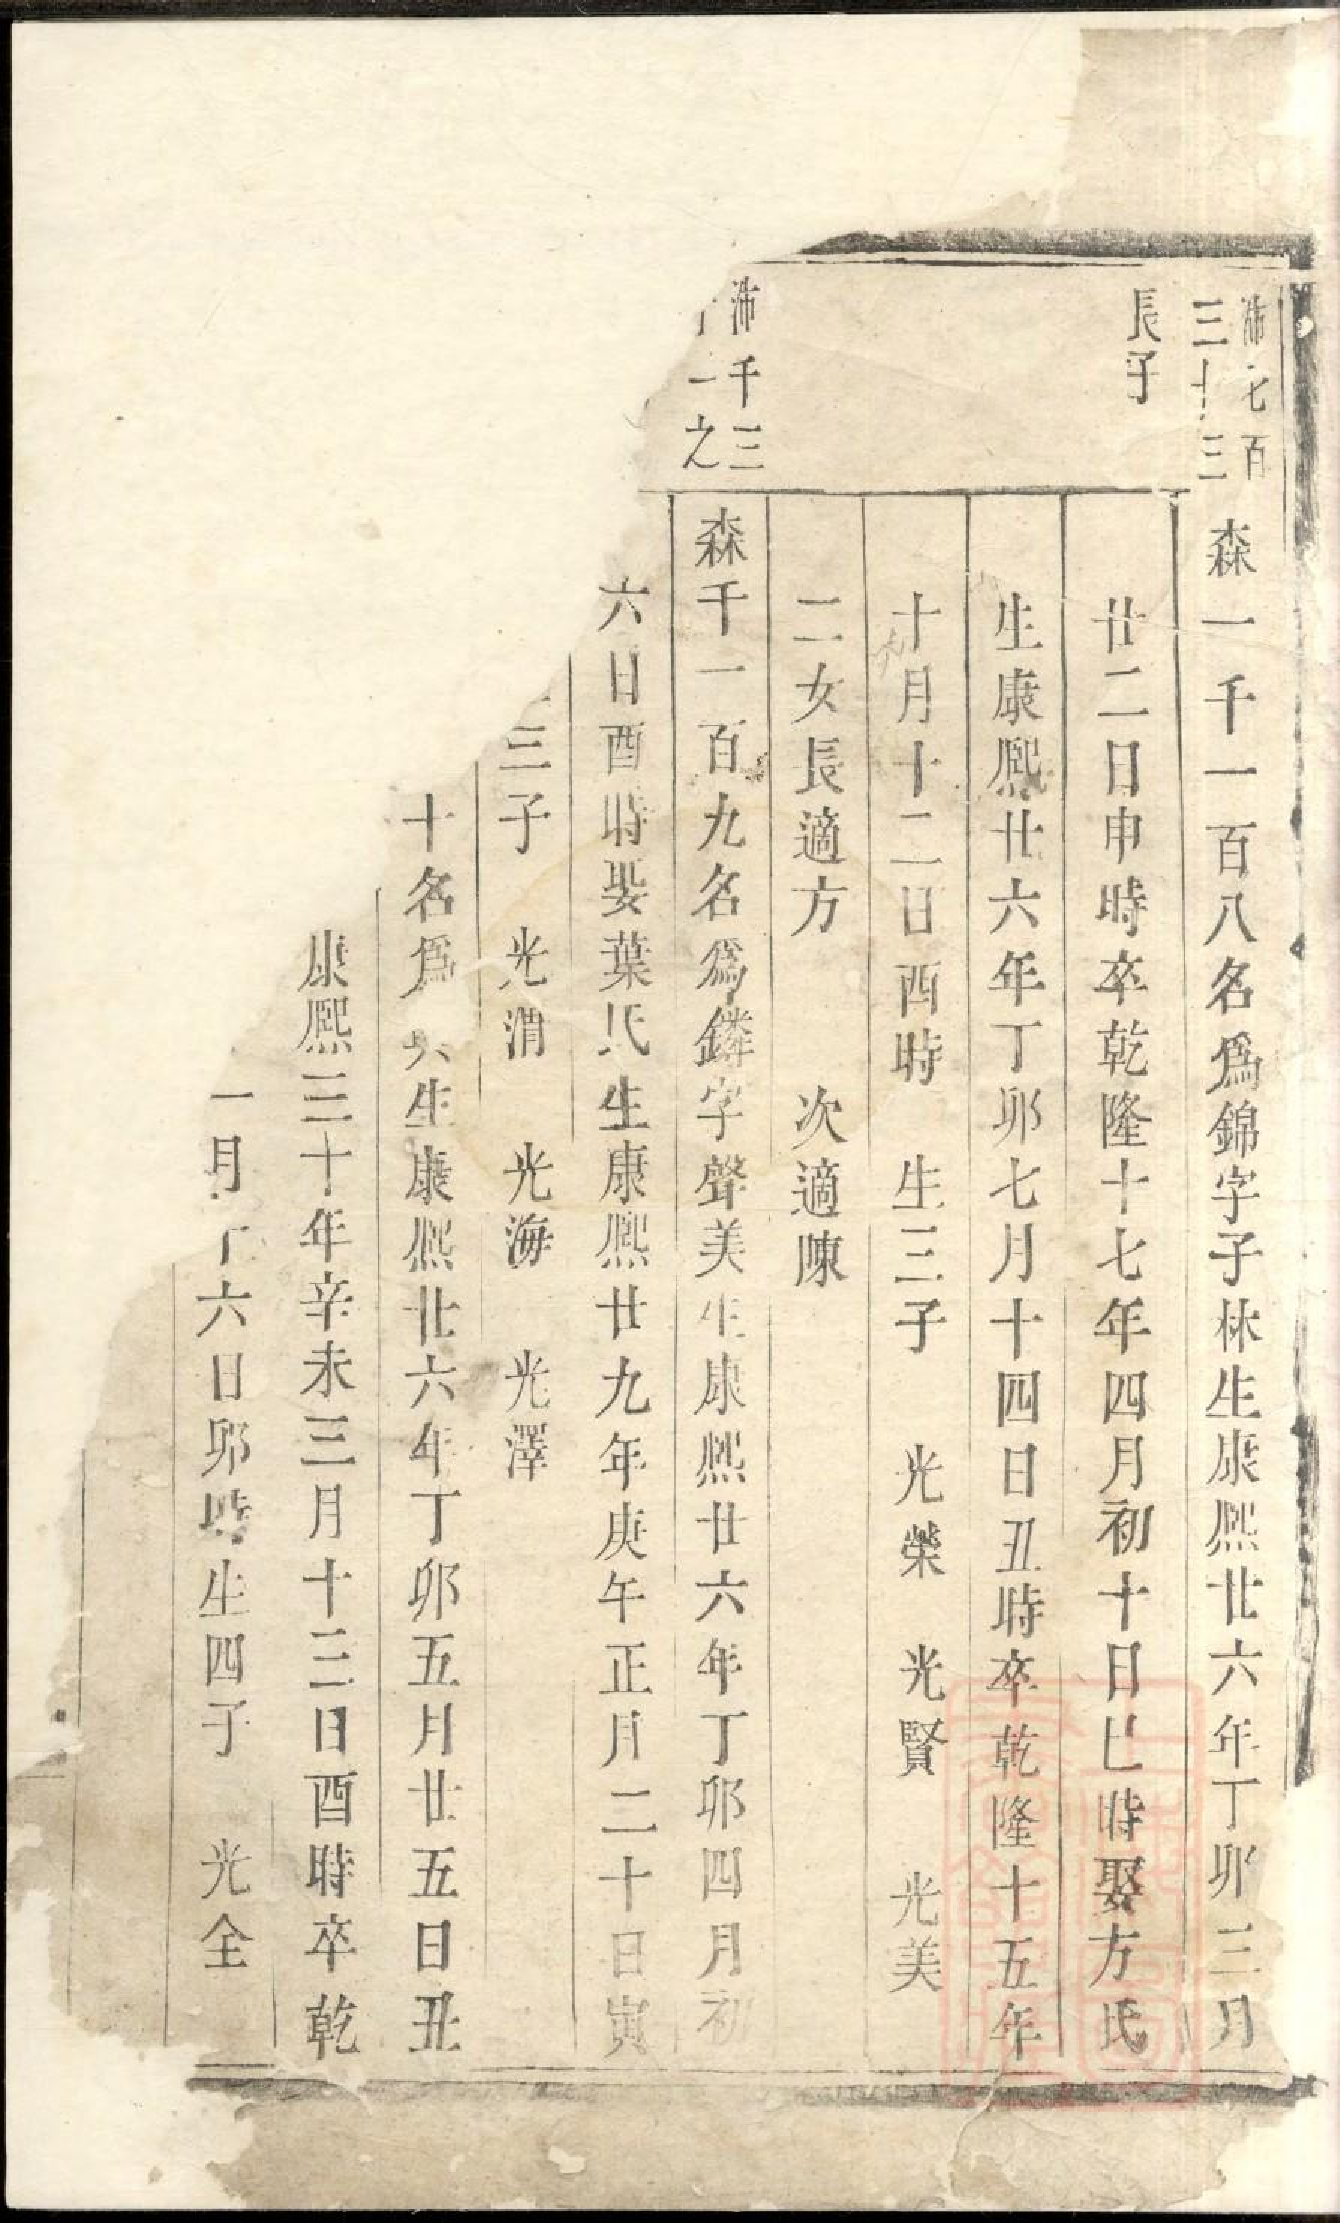 沛七百
三十三
長子
森一千一百八名爲錦字子林生康熙廿六年丁卯三月
廿二日申時卒乾隆十七年四月初十日巳時娶方氏
生康熙廿六年丁卯七月十四日丑時卒乾隆十五年
十月十二日酉時 生三子 光榮 光賢 光美
二女長適方 次適陳
沛千三
十一之
森千一百九名爲鏻字聲美生康熙廿六年丁卯四月初
六日酉時娶葉氏生康熙廿九年庚午正月二十日寅
三子 光渭 光海 光澤
十名爲 生康熙廿六年丁卯五月廿五日丑
康熙三十年辛未三月十三日酉時卒乾
一月十六日卯時生四子 光全